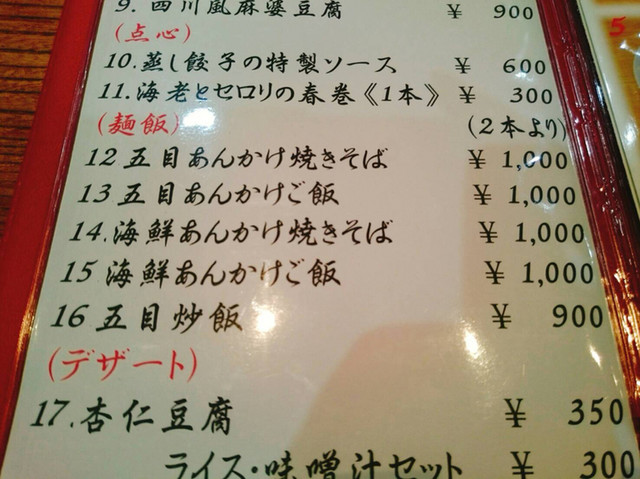 9. 四川風麻婆豆腐 ¥ 900
(点心)
10. 蒸し餃子の特製ソース ¥ 600
11. 海老とセロリの春巻《1本》 ¥ 300
(麺飯) (2本より)
12 五目あんかけ焼きそば ¥ 1,000
13 五目あんかけご飯 ¥ 1,000
14. 海鮮あんかけ焼きそば ¥ 1,000
15 海鮮あんかけご飯 ¥ 1,000
16 五目炒飯 ¥ 900
(デザート)
17. 杏仁豆腐 ¥ 350
ライス・味噌汁セット ¥ 300
5